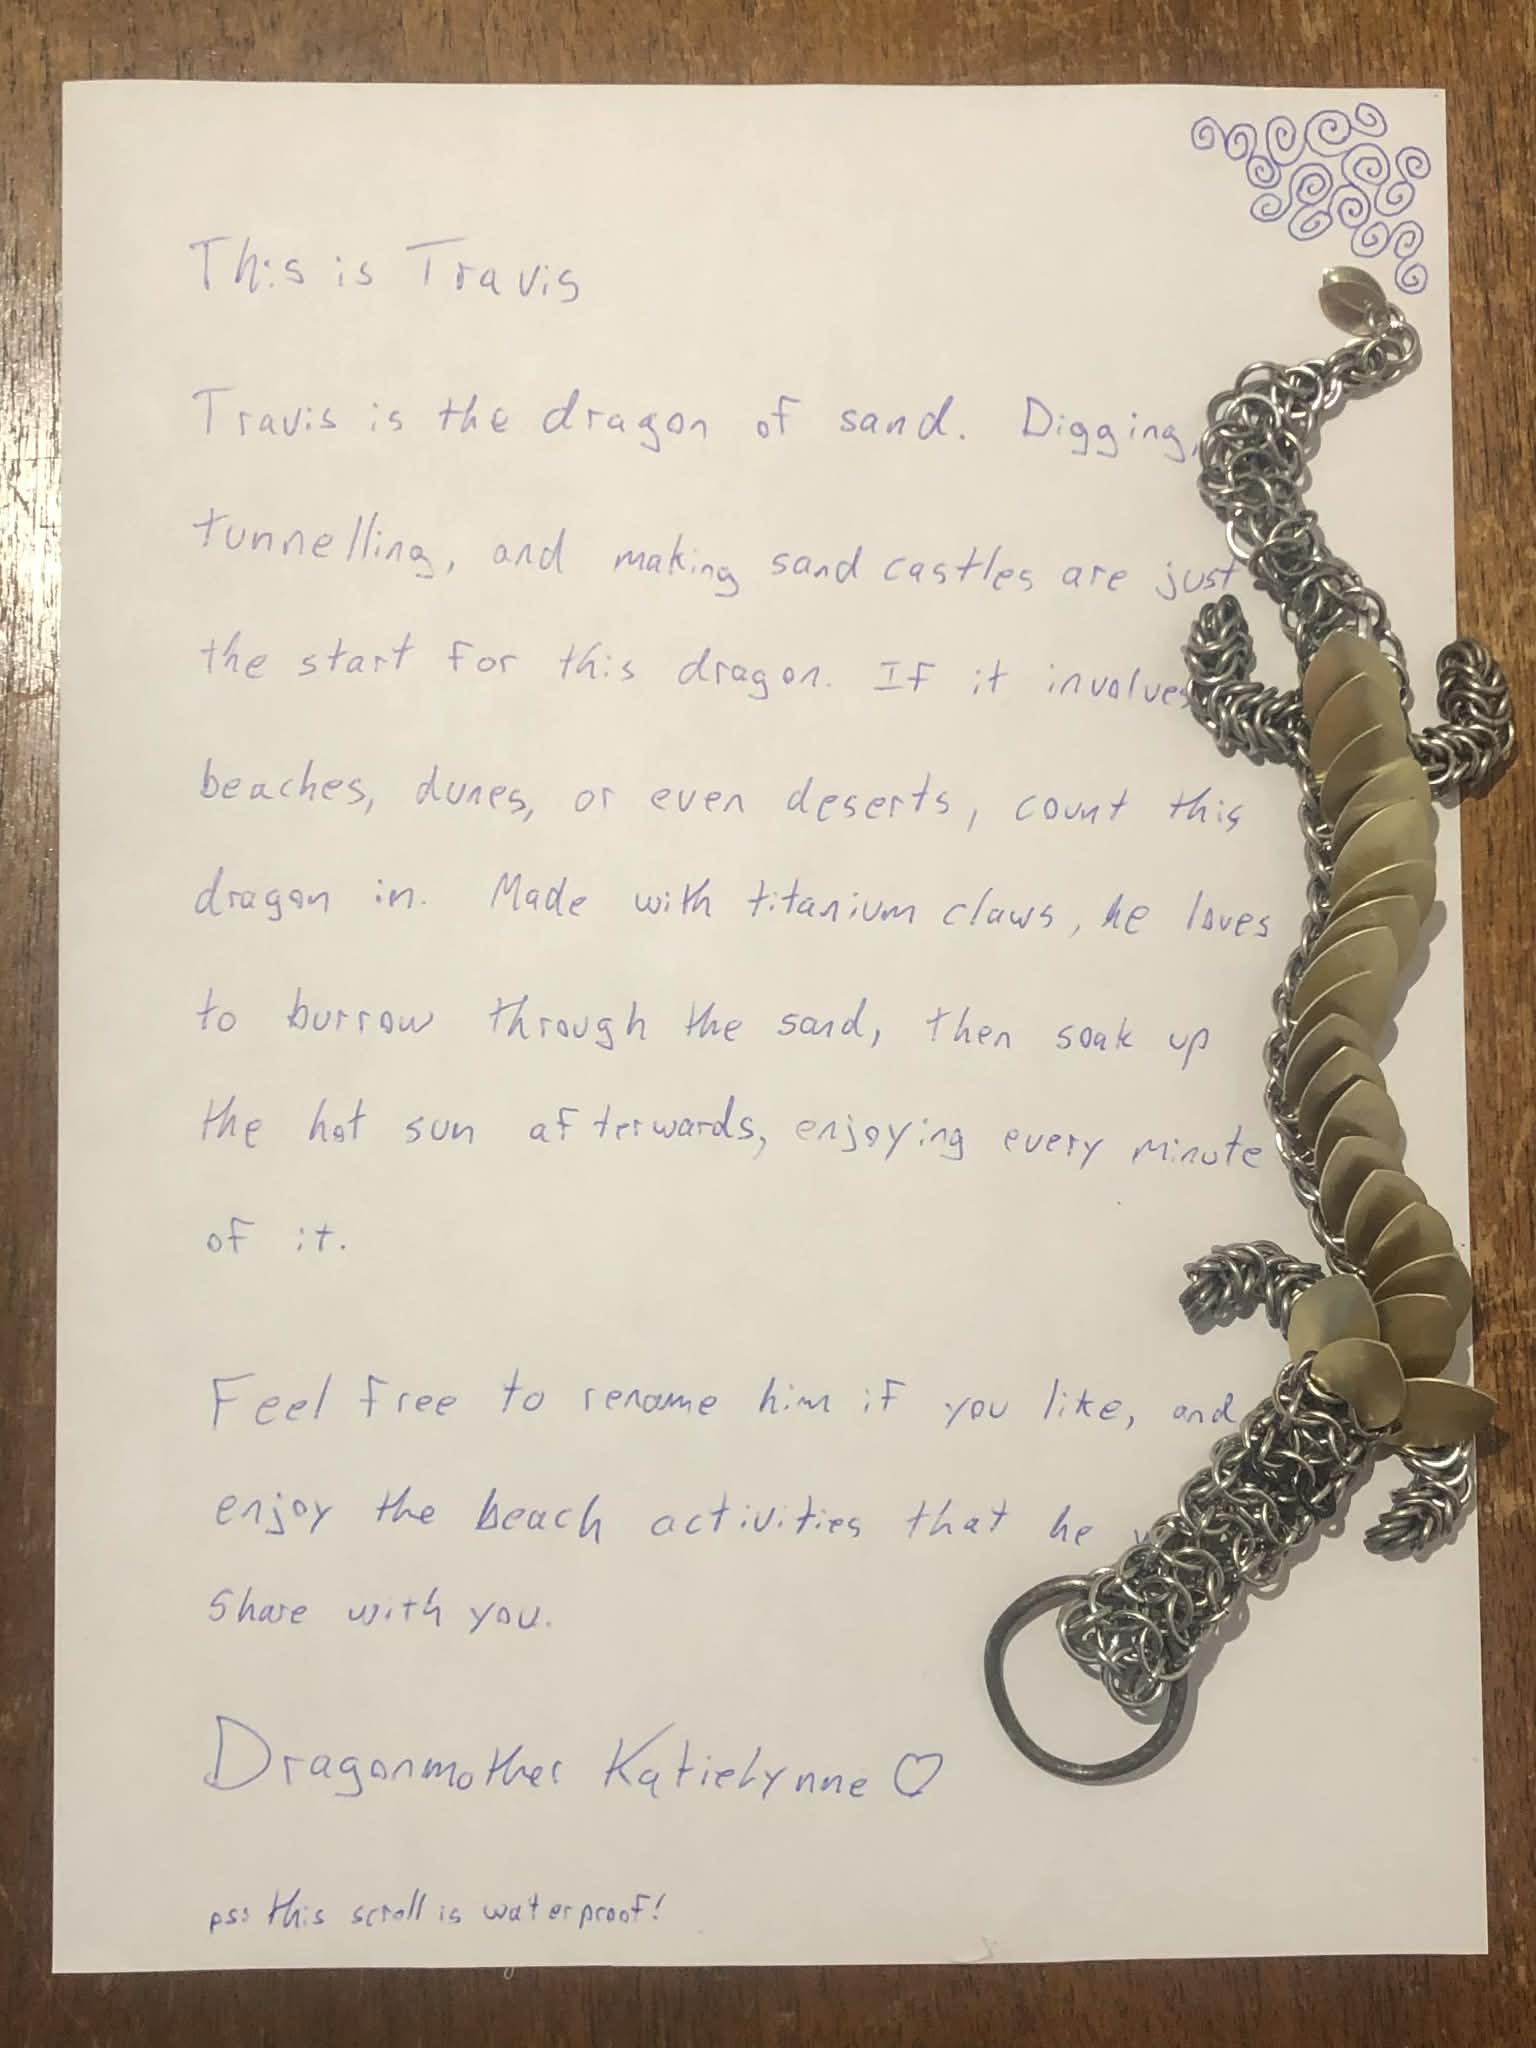 This is Travis
Travis is the dragon of sand. Digging,
tunnelling, and making sand castles are just
the start for this dragon. If it involves
beaches, dunes, or even deserts, count this
dragon in. Made with titanium claws, he loves
to burrow through the sand, then soak up
the hot sun afterwards, enjoying every minute
of it.
Feel free to rename him if you like, and
enjoy the beach activities that he
share with you.
Dragonmother Katielynne ♡
ps: this scroll is waterproof!